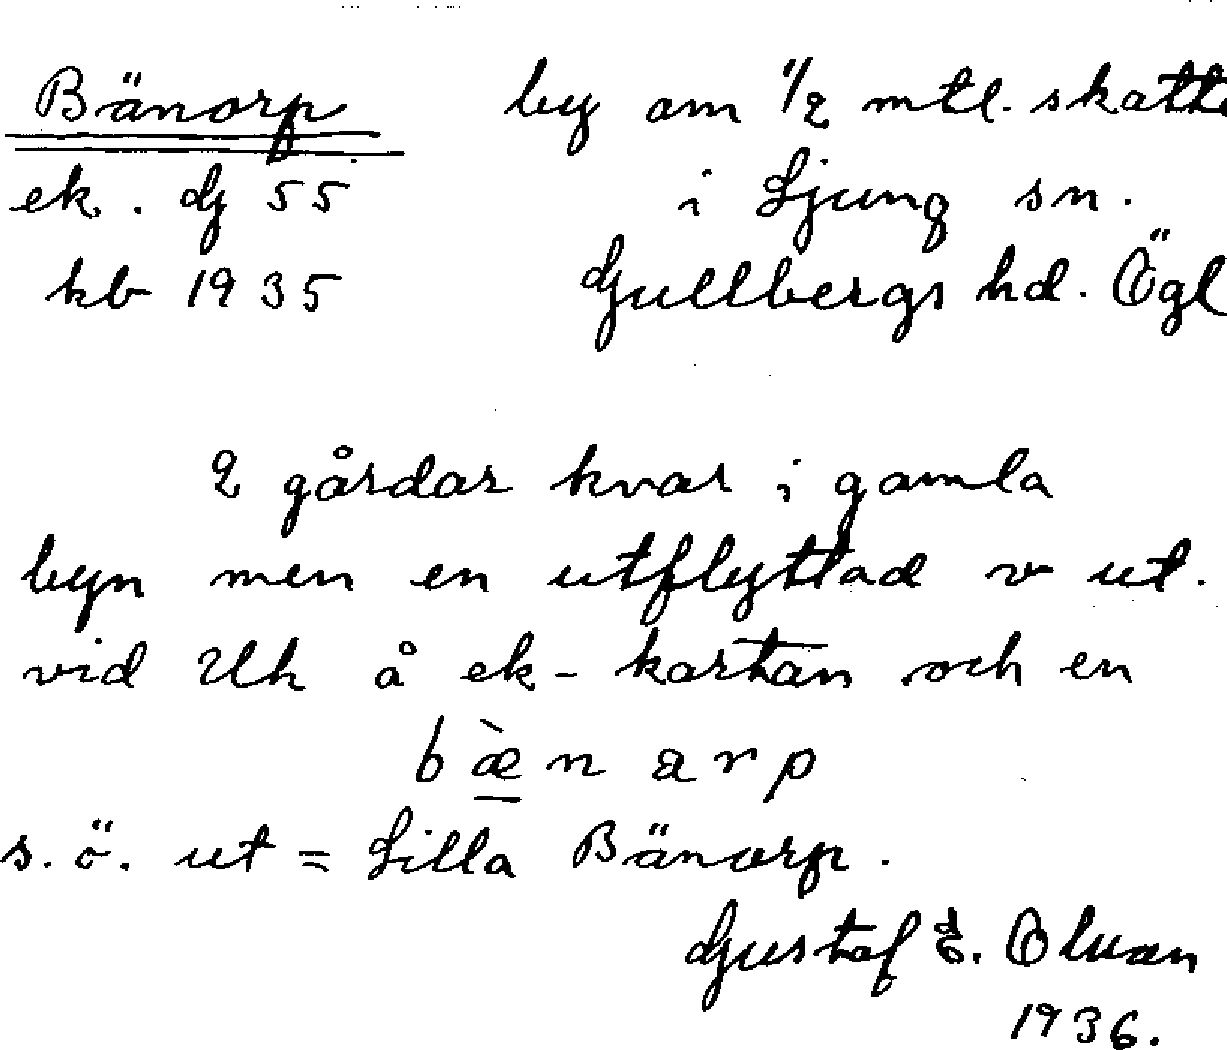 Bänorp by om 1/2 mtl. skatte
ek. dg 55 i Ljung sn.
kb 1935 Gullbergs hd. Ögl
2 gårdar kvar i gamla
byn men en utflyttad v ut.
vid Uh å ek-kartan och en
bæ̀narp
s.ö. ut = Lilla Bänorp.
Gustaf E.
1936.